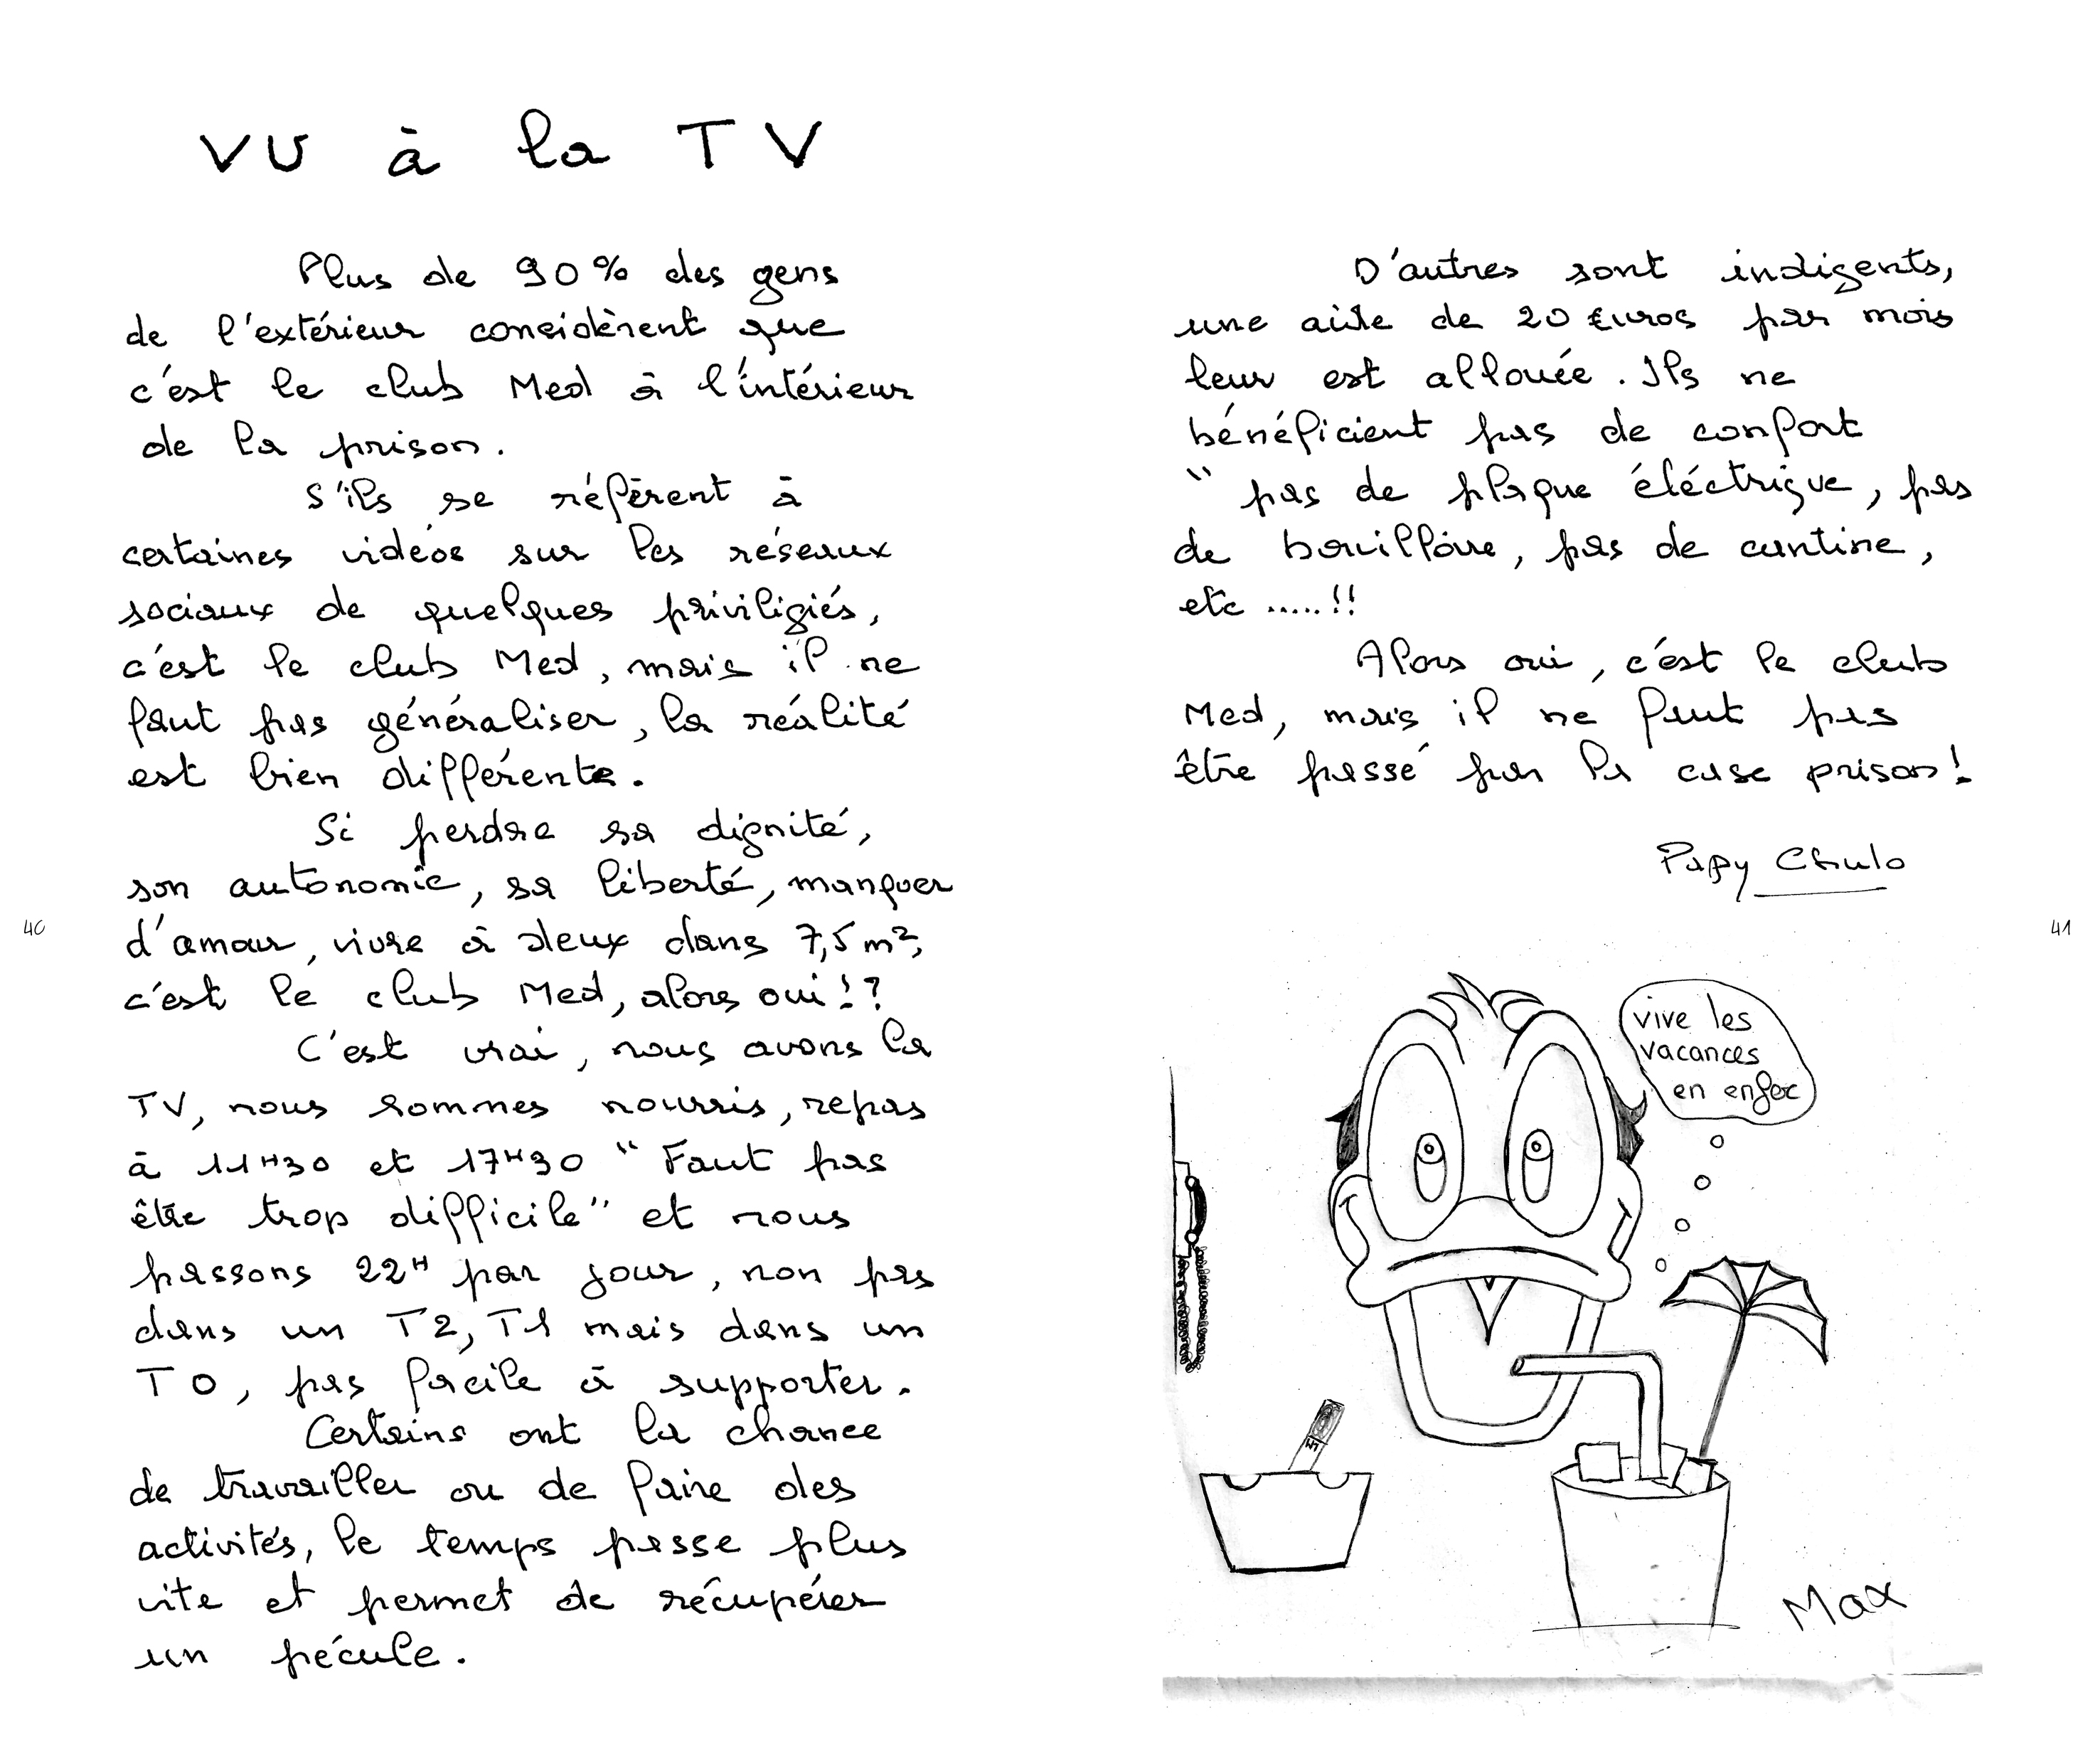 VU à la TV
Plus de 90% des gens
de l'extérieur considèrent que
c'est le club Med à l'intérieur
de la prison.
S'ils se réfèrent à
certaines vidéos sur les réseaux
sociaux de quelques priviligiés,
c'est le club Med, mais il ne
faut pas généraliser, la réalité
est bien différente.
Si perdre sa dignité,
son autonomie, sa liberté, manquer
d'amour, vivre à deux dans 7,5 m²,
c'est le club Med, alors oui !?
C'est vrai, nous avons la
TV, nous sommes nourris, repas
à 11H30 et 17H30 "Faut pas
être trop difficile" et nous
passons 22H par jour, non pas
dans un T2, T1 mais dans un
T0, pas facile à supporter.
Certains ont la chance
de travailler ou de faire des
activités, le temps passe plus
vite et permet de récupérer
un pécule.
40
D'autres sont indigents,
une aide de 20 Euros par mois
leur est allouée. Ils ne
bénéficient pas de confort
" pas de plaque éléctrique, pas
de bouilloire, pas de cantine,
etc .....!!
Alors oui, c'est le club
Med, mais il ne faut pas
être passé par la case prison !
Papy Chulo
41
vive les
vacances
en enfer
Max